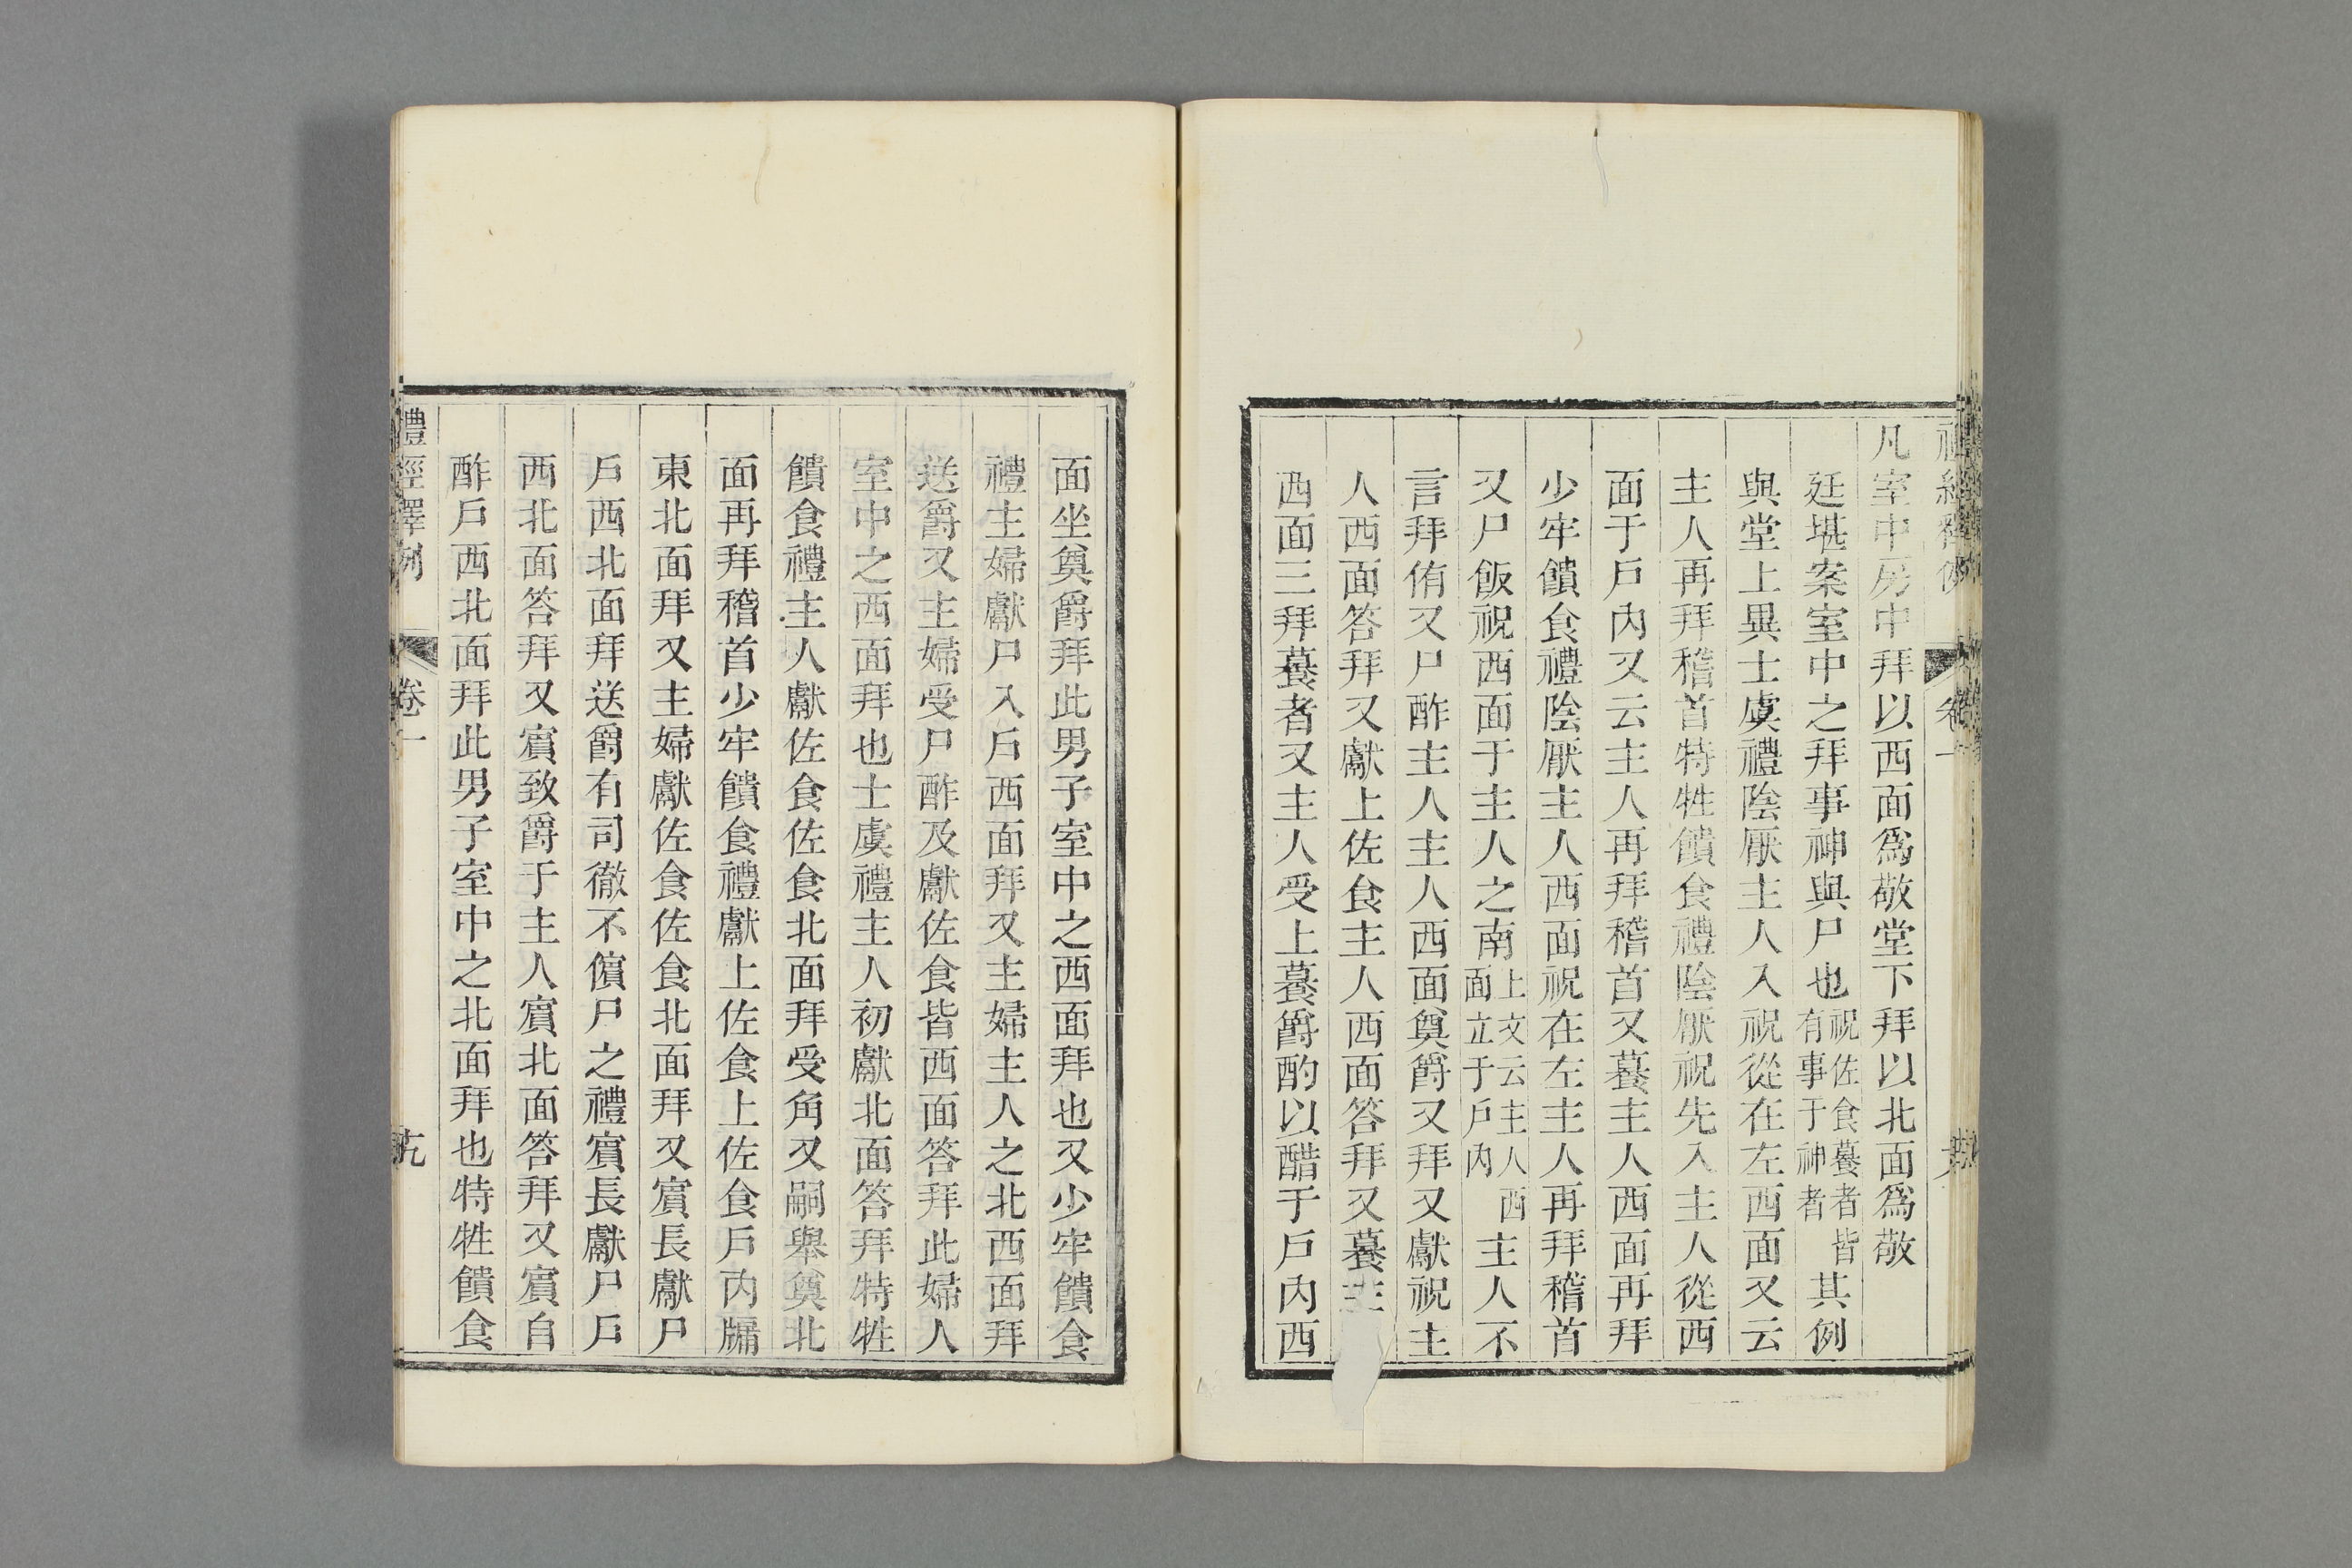 凡室中房中拜以西面爲敬堂下拜以北面爲敬
廷堪案室中之拜事神與尸也祝佐食養者皆有事于神者其例
與堂上異士虞禮陰厭主人入祝從在左西面又云
主人再拜稽首特牲饋食禮陰厭祝先入主人從西
面于戶內又云主人再拜稽首又養主人西面再拜
少牢饋食禮陰厭主人西面祝在左主人再拜稽首
又尸飯祝西面于主人之南上文云主人西面立于戶內主人不
言拜侑又尸酢主人主人西面奠爵又拜又獻祝主
人西面答拜又獻上佐食主人西面答拜又養主
西面三拜養者又主人受上養爵酌以醋于戶內西
面坐奠爵拜此男子室中之西面拜也又少牢饋食
禮主婦獻尸入戶西面拜又主婦主人之北西面拜
送爵又主婦受尸酢及獻佐食皆西面答拜此婦人
室中之西面拜也士虞禮主人初獻北面答拜特牲
饋食禮主人獻佐食佐食北面拜受角又嗣舉奠北
面再拜稽首少牢饋食禮獻上佐食上佐食戶內牖
東北面拜又主婦獻佐食佐食北面拜又賓長獻尸
戶西北面拜送爵有司徹不儐尸之禮賓長獻尸戶
西北面答拜又賓致爵于主人賓北面答拜又賓自
酢戶西北面拜此男子室中之北面拜也特牲饋食
禮經釋例 卷一 十九